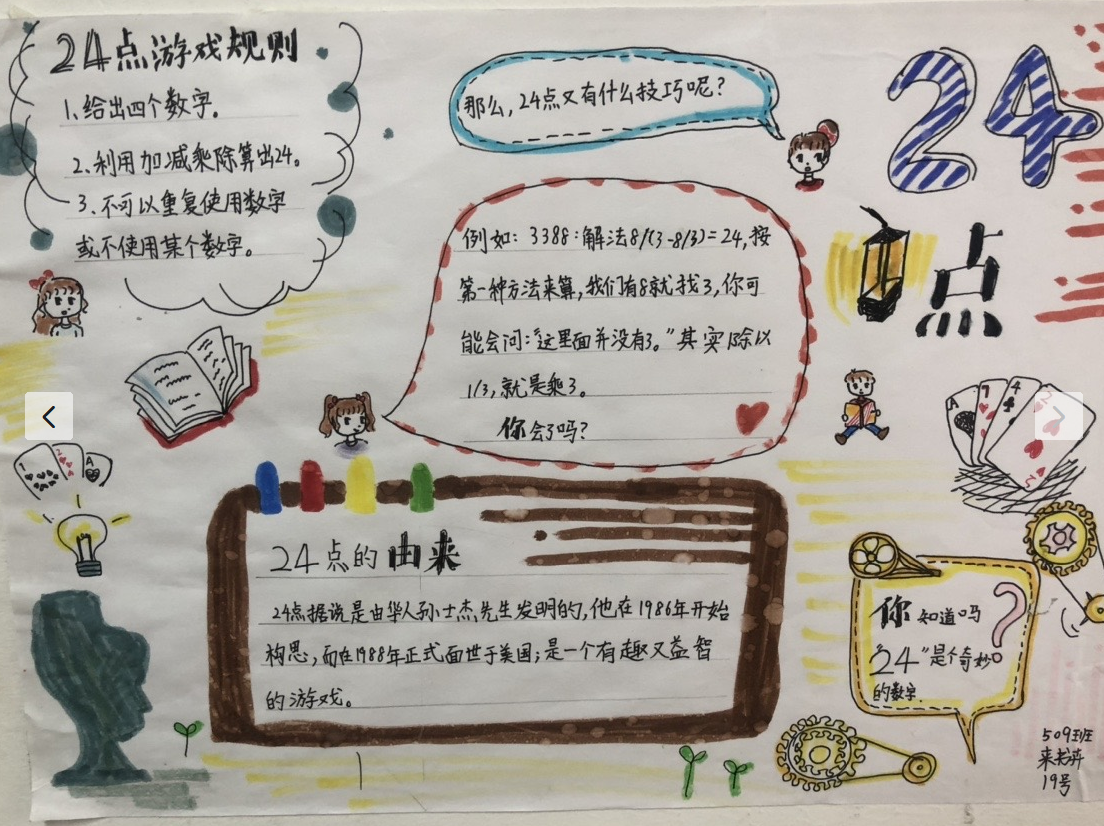 24点游戏规则
1、给出四个数字。
2、利用加减乘除算出24。
3、不可以重复使用数字
或不使用某个数字。
那么,24点又有什么技巧呢?
24
点
例如: 3388:解法8/(3-8/3)=24,按
第一种方法来算,我们有8就找3,你可
能会问:“这里面并没有3。”其实除以
1/3,就是乘3。
你会了吗?
A
7
4
2
2
1
2
A
24点的由来
24点据说是由华人孙士杰先生发明的,他在1986年开始
构思,而在1988年正式面世于美国;是一个有趣又益智
的游戏。
你知道吗?
“24”是个奇妙
的数字
509班
来书卉
19号